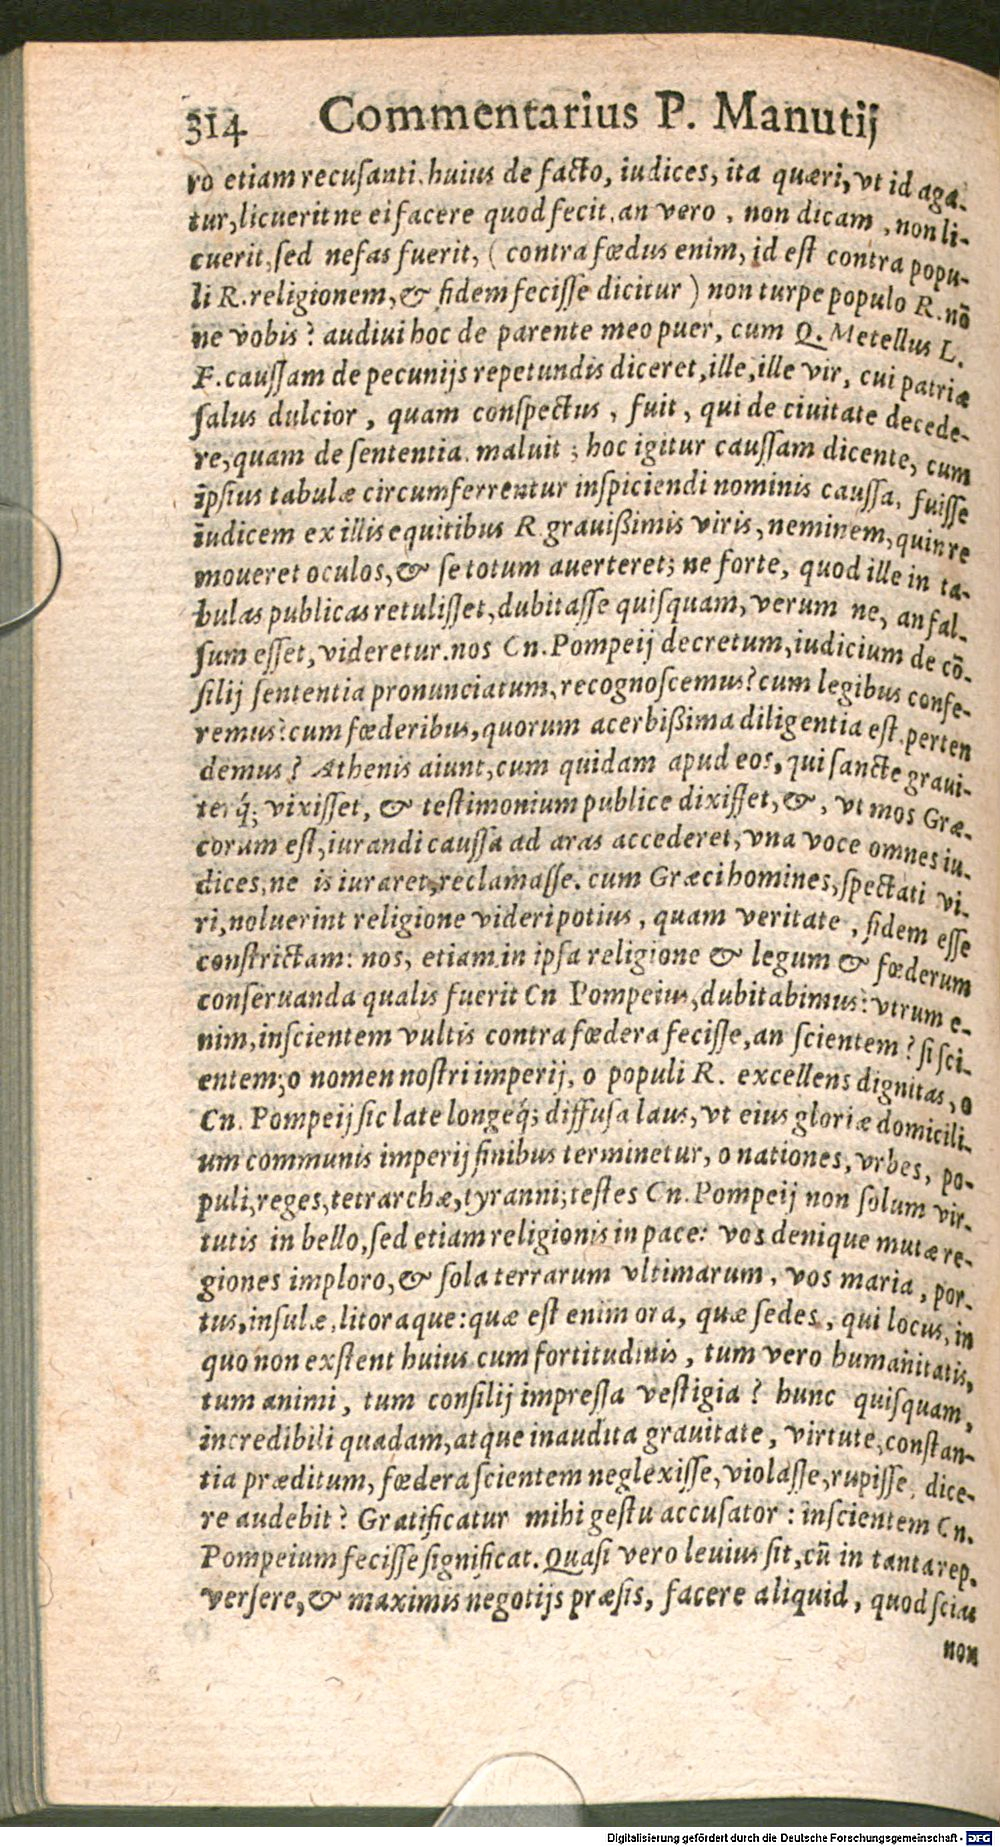 314 Commentarius P. Manutij
ro etiam recuſanti. huius de facto, iudices, ita quæri, vt id aga-
tur, licueritne ei facere quod fecit, an vero, non dicam, non li-
cuerit, ſed nefas fuerit, (contra fœdus enim, id eſt contra popu-
li R. religionem, & fidem feciſſe dicitur) non turpe populo R. nō
ne vobis? audiui hoc de parente meo puer, cum Q. Metellus L.
F. cauſſam de pecunijs repetundis diceret, ille, ille vir, cui patriæ
ſalus dulcior, quam conſpectus, fuit, qui de ciuitate decede-
re, quam de ſententia. maluit; hoc igitur cauſſam dicente, cum
ipſius tabulæ circumferrentur inſpiciendi nominis cauſſa, fuiſſe
iudicem ex illis equitibus R grauißimis viris, neminem, quin re
moueret oculos, & ſe totum auerteret; ne forte, quod ille in ta-
bulas publicas retuliſſet, dubitaſſe quiſquam, verum ne, an fal-
ſum eſſet, videretur. nos Cn. Pompeij decretum, iudicium de cō-
ſilij ſententia pronunciatum, recognoſcemus? cum legibus confe-
remus? cum fœderibus, quorum acerbißima diligentia eſt perten
demus? Athenis aiunt, cum quidam apud eos, qui ſancte graui-
terq́; vixiſſet, & teſtimonium publice dixiſſet, &, vt mos Græ-
corum eſt, iurandi cauſſa ad aras accederet, vna voce omnes iu-
dices, ne is iuraret, reclamaſſe. cum Græci homines, ſpectati vi-
ri, noluerint religione videri potius, quam veritate, fidem eſſe
conſtrictam: nos, etiam in ipſa religione & legum & fœderum
conſeruanda qualis fuerit Cn Pompeius, dubitabimus? vtrum e-
nim, inſcientem vultis contra fœdera feciſſe, an ſcientem? ſi ſci-
entem; o nomen noſtri imperij, o populi R. excellens dignitas, o
Cn. Pompeij ſic late longeq́; diffuſa laus, vt eius gloriæ domicili-
um communis imperij finibus terminetur, o nationes, vrbes, po-
puli, reges, tetrarchæ, tyranni; teſtes Cn. Pompeij non ſolum vir-
tutis in bello, ſed etiam religionis in pace: vos denique mutæ re-
giones imploro, & ſola terrarum vltimarum, vos maria, por-
tus, inſulæ, litoraque: quæ eſt enim ora, quæ ſedes, qui locus, in
quo non exſtent huius cum fortitudinis, tum vero humanitatis,
tum animi, tum conſilij impreſſa veſtigia? hunc quiſquam,
incredibili quadam, atque inaudita grauitate, virtute, conſtan-
tia præditum, fœdera ſcientem neglexiſſe, violaſſe, rupiſſe, dice-
re audebit? Gratificatur mihi geſtu accuſator: inſcientem Cn.
Pompeium feciſſe ſignificat. Quaſi vero leuius ſit, cū in tanta rep.
verſere, & maximis negotijs præſis, facere aliquid, quod ſcias
non
Digitalisierung gefördert durch die Deutsche Forschungsgemeinschaft - DFG